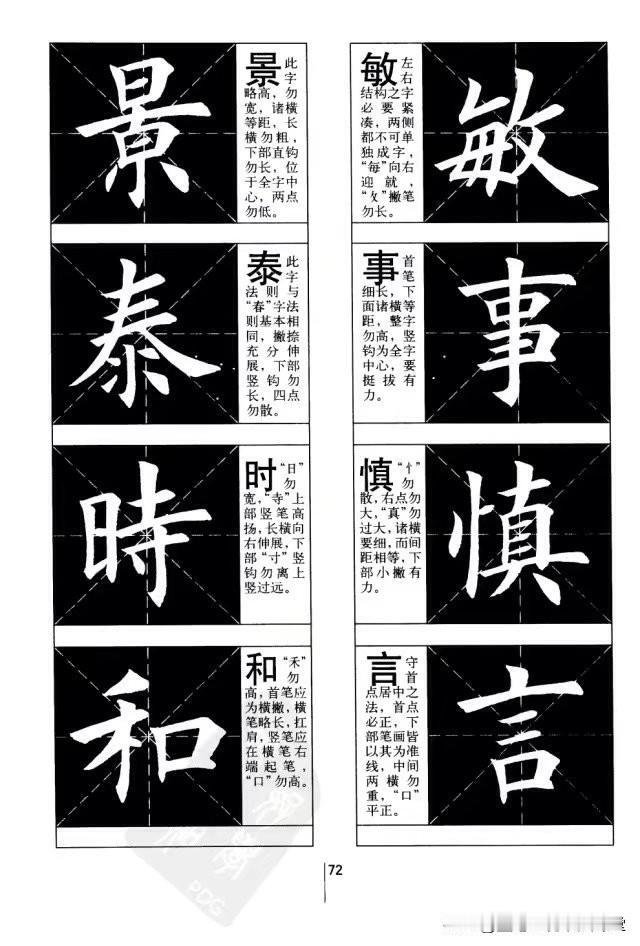 景
景 此
字
略高，勿
宽，诸横
等距，长
横勿粗，
下部直钩
勿长，位
于全字中
心，两点
勿低。
敏 左
右
结构之字
必要紧
凑，两侧
都不可单
独成字，
“每”向右
迎就，
“攵”撇笔
勿长。
敏
泰
泰 此
字
法则与
“春”字法
则基本相
同，撇捺
充分伸
展，下部
竖钩勿
长，四点
勿散。
事 首
笔
细长，下
面诸横等
距，整字
勿高，竖
钩为全字
中心，要
挺拔有
力。
事
時
时 “日”
勿
宽，“寺”上
部竖笔高
扬，长横向
右伸展，下
部“寸”竖
钩勿离上
竖过远。
慎 “忄”
勿
散，右点勿
大，“真”勿
过大，诸横
要细，而间
距相等，下
部小撇有
力。
慎
和
和 “禾”
勿
高，首笔应
为横撇，横
笔略长，扛
肩，竖笔应
在横笔右
端起笔，
“口”勿高。
言 守
首
点居中之
法，首点
必正，下
部笔画皆
以其为准
线，中间
两横勿
重，“口”
平正。
言
72
PDG